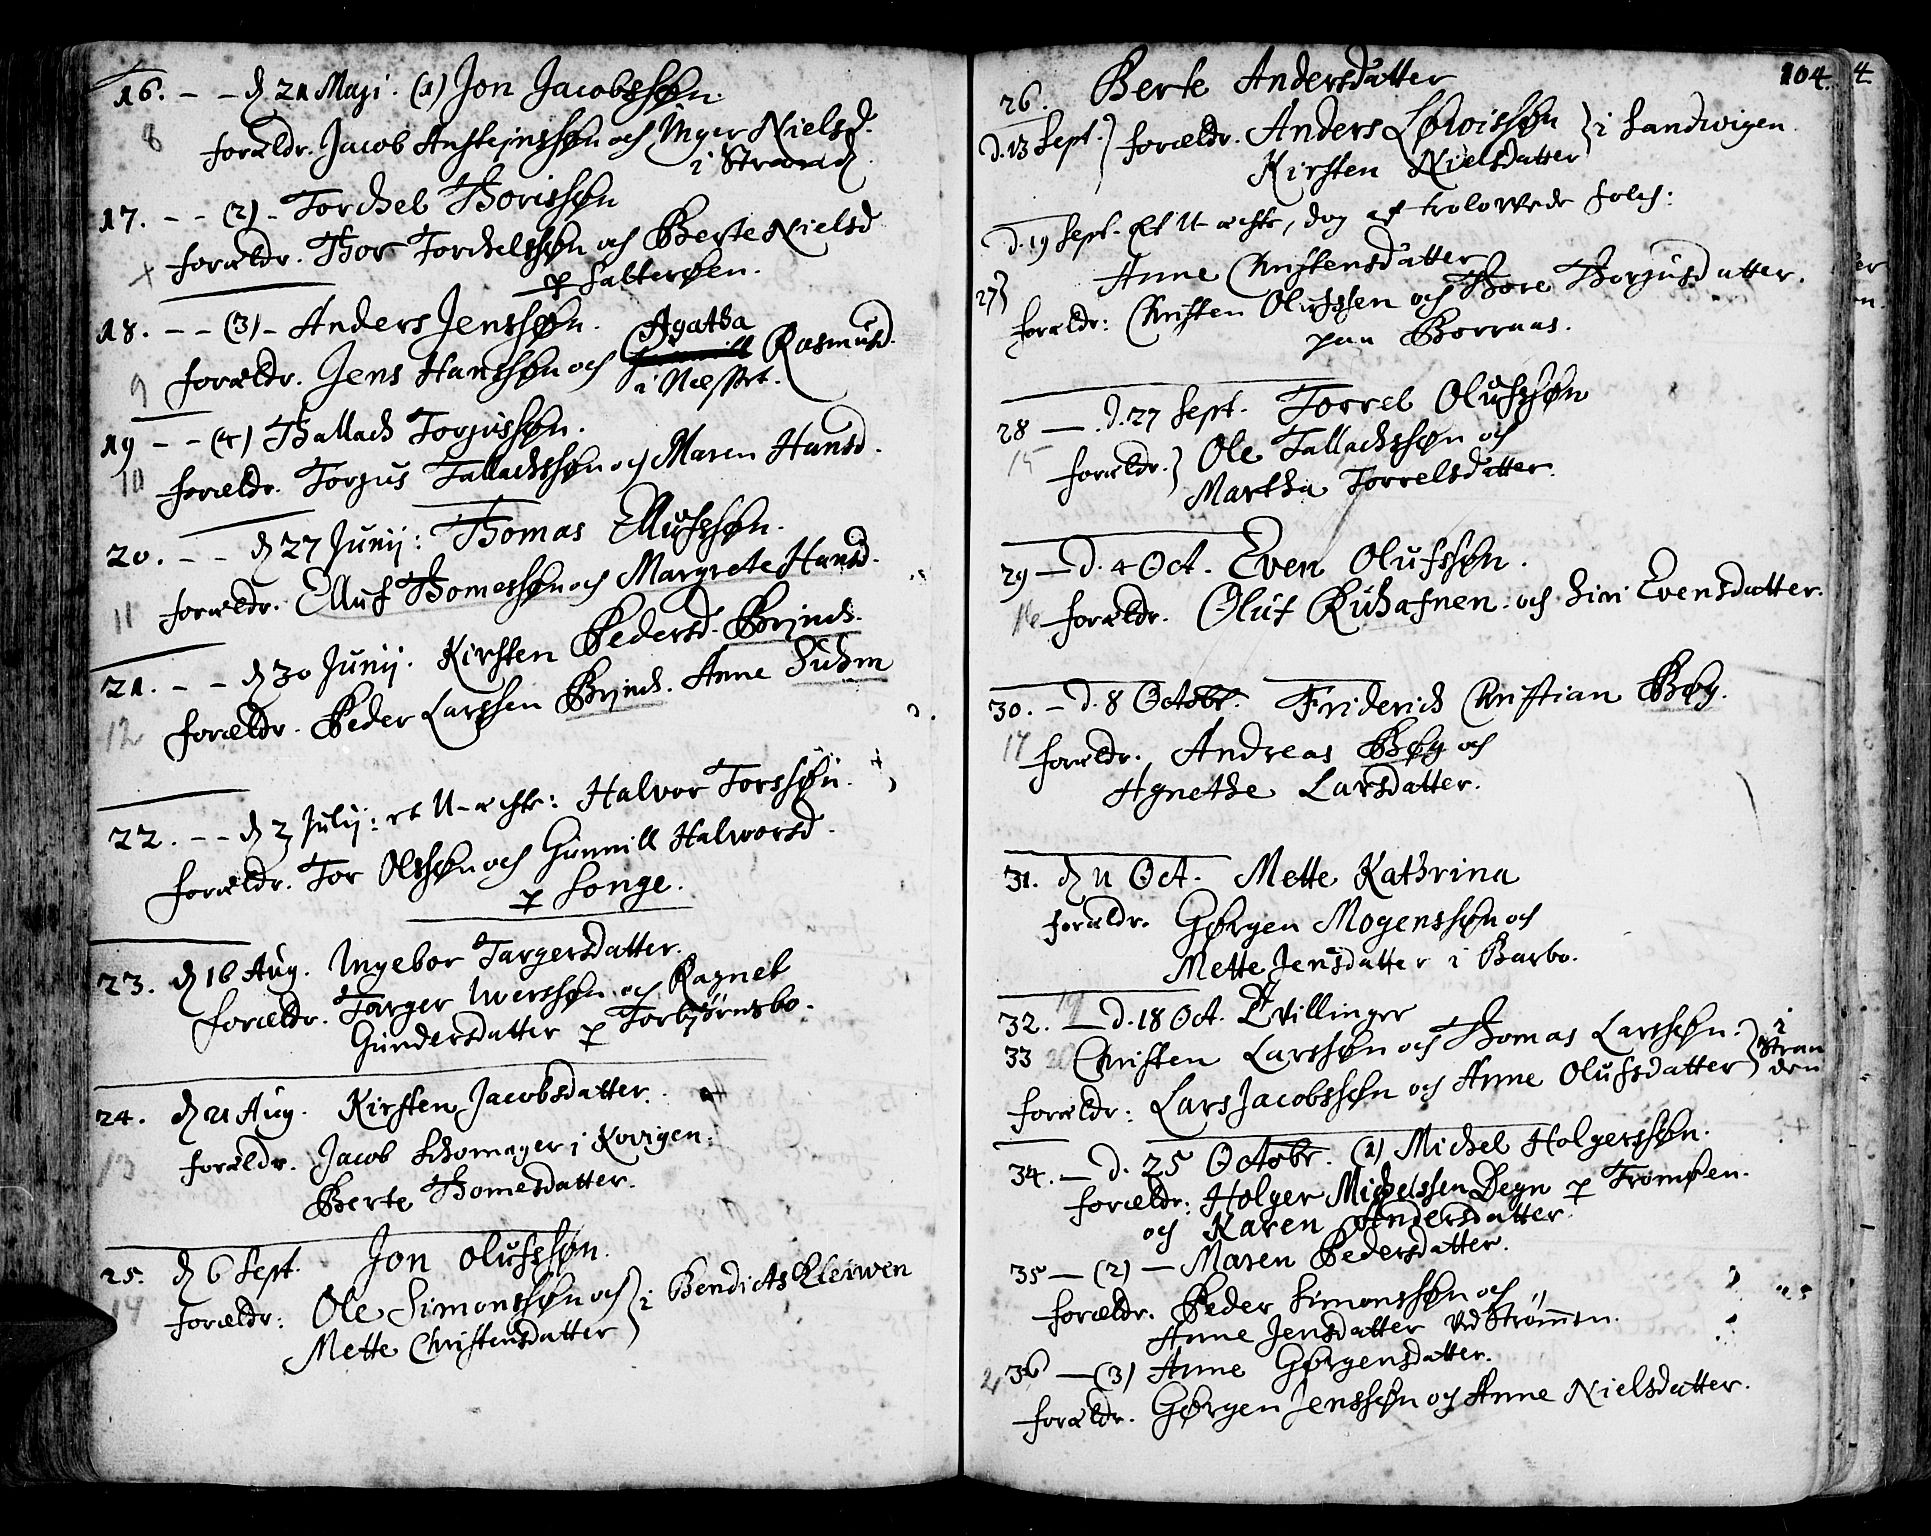 16. - - d 21 Maji. (1) Jon Jacobssøn.
8
forældr. Jacob Anstejnssøn och Inger Nielsd.
i Strand.
17. - - (2) - Torchel Thorissøn
forældr. Thor Torchelssøn och Berte Nielsd
p Salterøen.
18. - - (3) - Anders Jenssøn.
Agatha
9 forældr. Jens Hanssøn och Rasmusd.
i Næsset.
19 - - (4) Thallach Torjussøn.
10 forældr. Torjus Tallachssøn och Maren Hansd.
20. - - d 27 Junij: Thomas Ellufssøn.
11 forældr. Elluf Thomessøn och Margrete Hansd.
21. - - d 30 Junij. Kirsten Pedersd. Brinch.
12 forældr. Peder Larssen Brinch. Anne Suhm
22. - - d 2 Julij: et U-ächte: Halvor Torssøn.
forældr. Tor Olssøn och Gunnill Halworsd.
p Songe.
23. d 16 Aug. Ingebor Targersdatter.
forældr. Targer Iverssøn och Ragnel
Gundersdatter p Torbjørnsbo.
24. d 21 Aug. Kirsten Jacobsdatter.
13 forældr. Jacob Schomager i Kovigen.
Berte Thomesdatter.
25. d 6 Sept. Jon Olufssøn.
14 forældr: Ole Simonssøn och } i Bendicts Kleiwen
Mette Christensdatter
104.
26. Berte Andersdatter
d. 13 Sept. } forældr. Anders Lowissøn } i Sandvigen.
Kirsten Nielsdatter
d. 19 Sept. Et U-ächte, dog af trolowede folch:
27} Anne Christensdatter
forældr: Christen Olufssen och Thore Thorjusdatter.
paa Borraas.
28 — d. 27 Sept. Torrel Olufssøn
15 forældr. } Ole Tallachssøn och
Martha Torrelsdatter.
29 — d. 4 Oct. Even Olufssøn.
16 forældr. Oluf Kuhafnen. och Siri Evensdatter.
30. — d. 8 Octobr. Friderich Christian Bøg.
17 forældr. Andreas Bøg och
Agnethe Larsdatter.
31. d 11 Oct. Mette Kathrina
forældr. Gørgen Mogenssøn och
Mette Jensdatter i Barbo.
19
32. — d. 18 Oct. Tvillinger
33 20 Christen Larssøn och Thomas Larssøn. } i
Stran
forældr: Lars Jacobssøn och Anne Olufsdatter } den
34. — d. 25 Octobr. (1) Michel Holgerssøn.
forældr: Holger Michelssen Degn p Tromøen.
och Karen Andersdatter.
35 — (2) — Maren Pedersdatter.
forældr. Peder Simonssøn och
Anne Jensdatter ved Strømmen.
36 — (3) Anne Gørgensdatter.
forældr. Gørgen Jenssøn och Anne Nielsdatter.